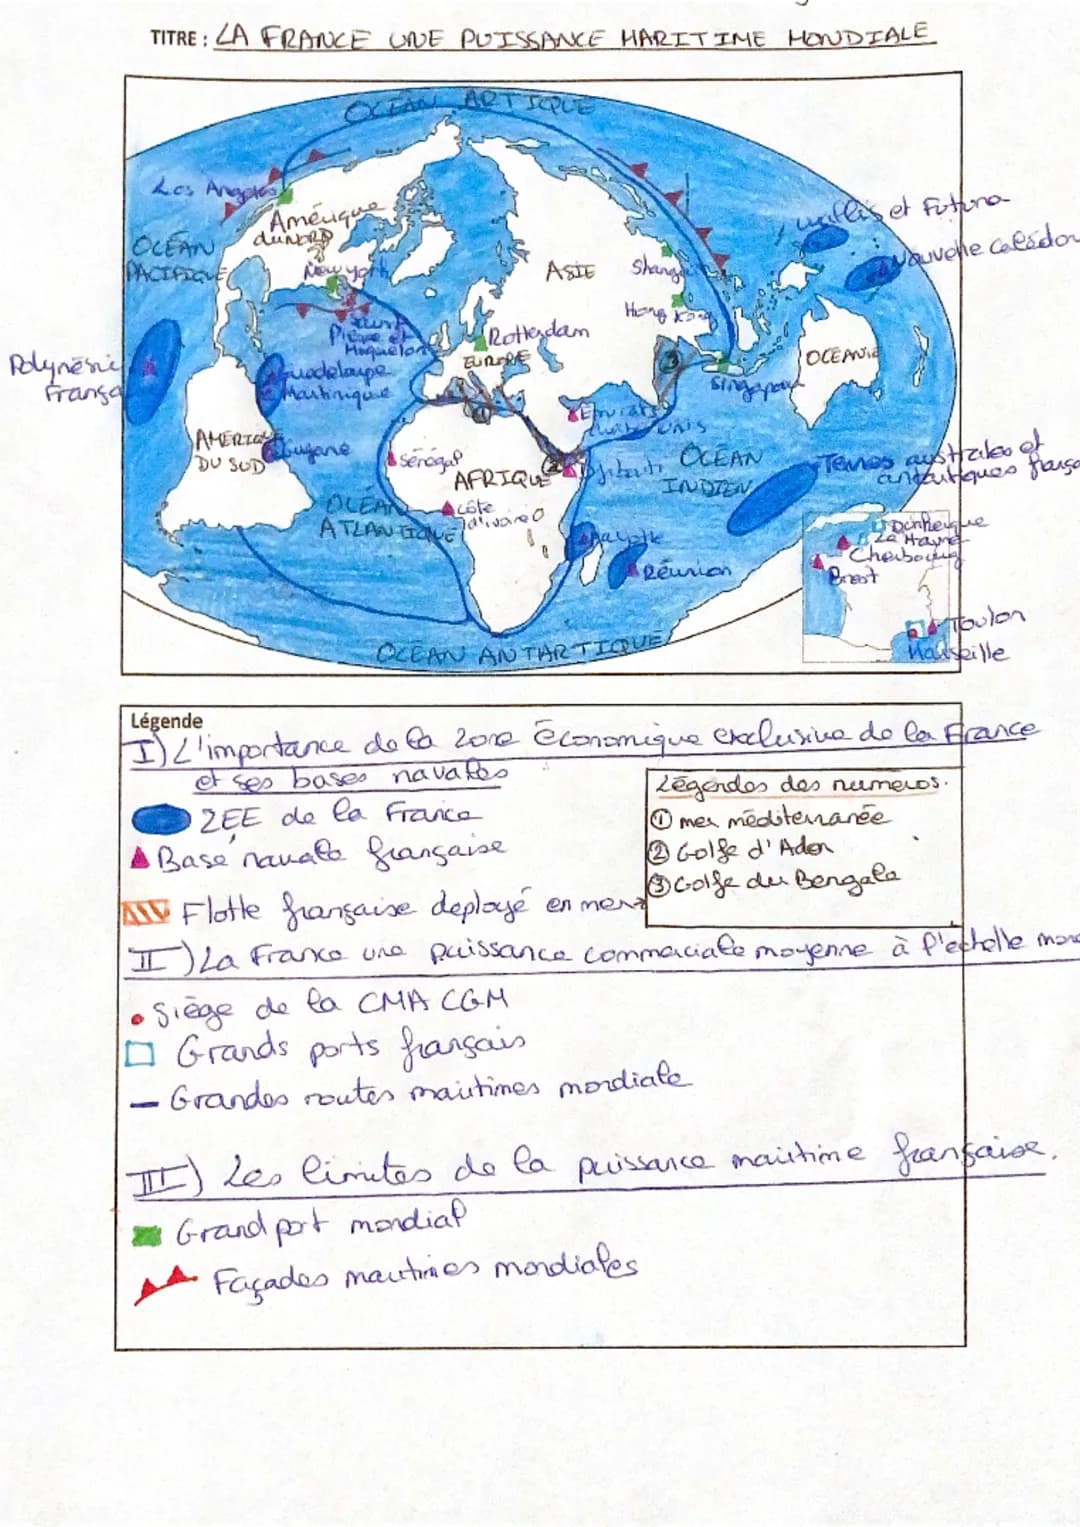 TITRE : LA FRANCE UNE PUISSANCE MARITIME MONDIALE
OCÉAN ARTIQUE
Los Angeles
Amérique
du NORD
OCÉAN
PACIFIQUE
New york
ASIE
Shangai
Hong Kong
Wallis et Futuna
Nouvelle Calédon
Saint
Pierre et
Miquelon
Rotterdam
EUROPE
OCEANIE
Polynésie
França
Guadeloupe
Martinique
Singapour
①
②
③
Emirats
Arabes UNIS
AMERIQUE
DU SUD
Guyane
Sénégal
AFRIQUE
Djibouti
OCÉAN
INDIEN
Terres australes et
antartiques frança
OCÉAN
ATLANTIQUE
côte
d'ivoire
Mayotte
Réunion
Dunkerque
Le Havre
Cherbourg
Brest
Toulon
Marseille
OCÉAN ANTARTIQUE
Légende
I) L'importance de la zone Économique exclusive de la France
et ses bases navales
ZEE de la France
Base navale française
Flotte française deployé en mer
Légendes des numéros.
① mer méditerranée
② Golfe d'Aden
③ Golfe du Bengale
II) La France une puissance commerciale moyenne à l'echelle mon
Siège de la CMA CGM
Grands ports français
Grandes routes maritimes mondiale
III) Les limites de la puissance maritime française.
Grand port mondial
Façades maritimes mondiales